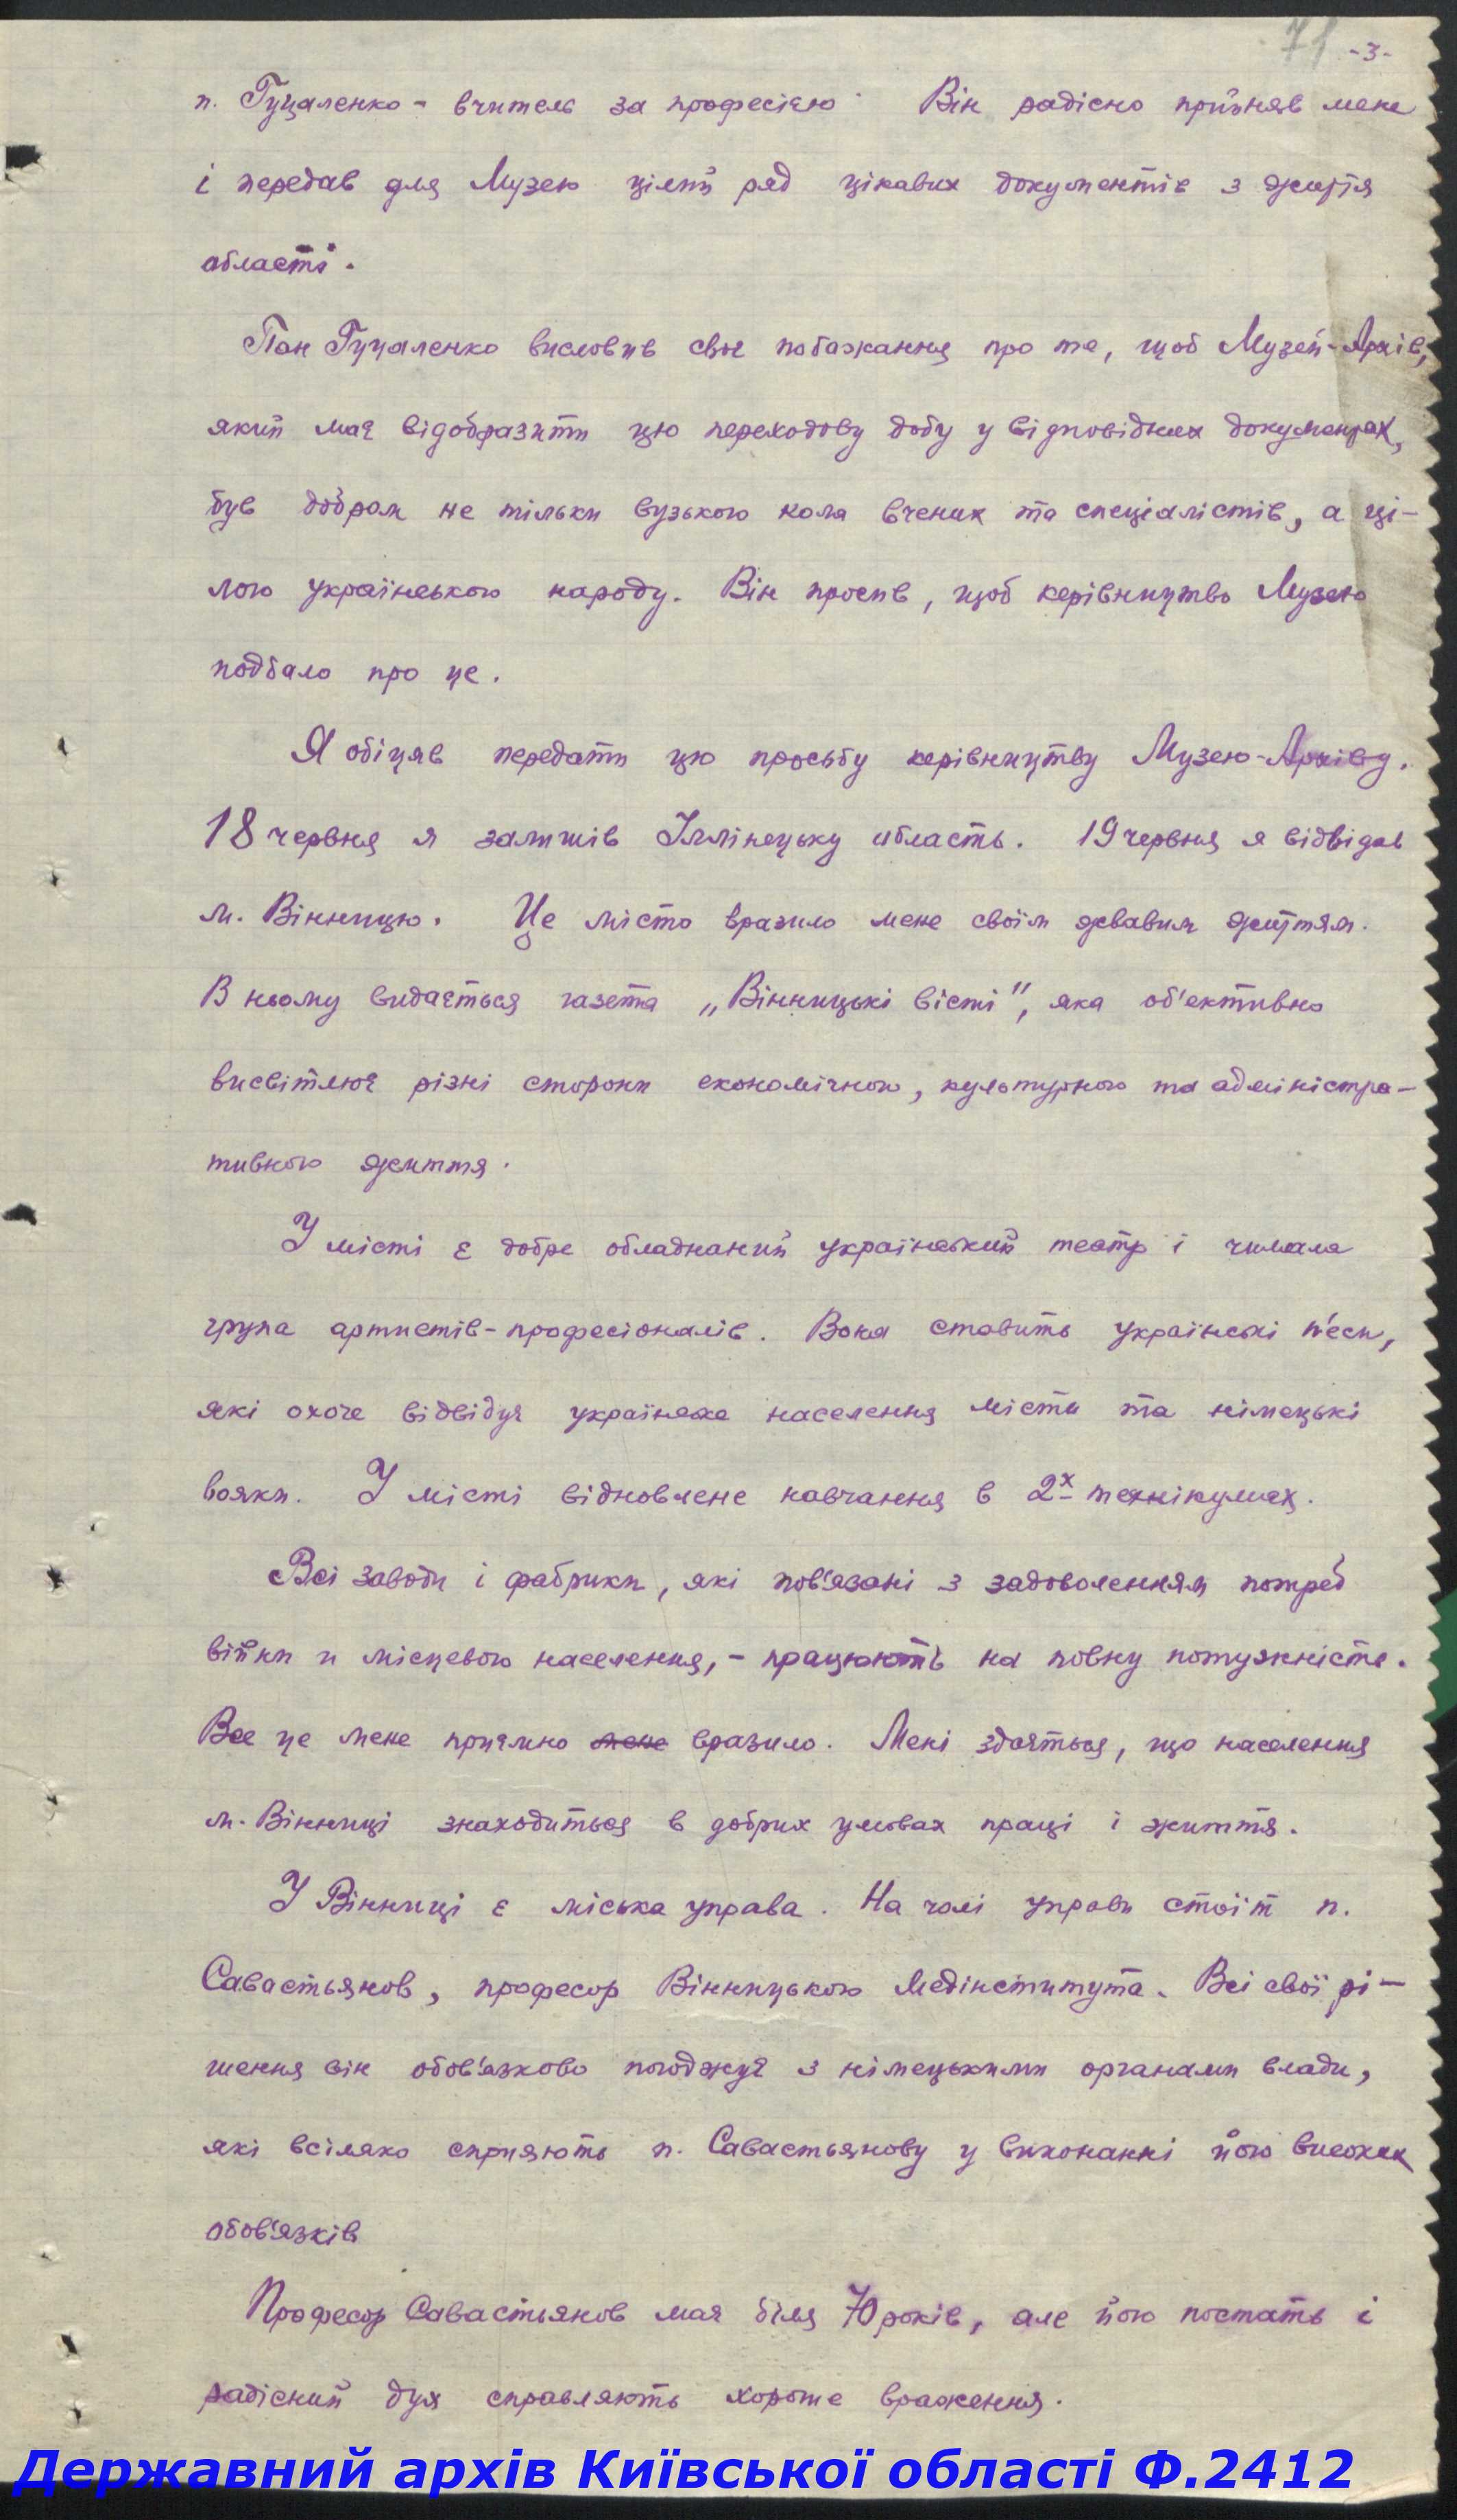 71 -3-
п. Гуцаленко - вчитель за професією. Він радісно прийняв мене
і передав для Музею цілий ряд цікавих документів з життя
області.
Пан Гуцаленко висловив своє побажання про те, щоб Музей-Архів,
який має відобразити цю переходову добу у відповідних документах,
був добром не тільки вузького кола вчених та спеціалістів, а ці-
лого українського народу. Він просив, щоб керівництво Музею
подбало про це.
Я обіцяв передати цю просьбу керівництву Музею-Архіву.
18 червня я залишив Іллінецьку область. 19 червня я відвідав
м. Вінницю. Це місто вразило мене своїм жвавим життям.
В ньому видається газета „Вінницькі вісті", яка об'єктивно
висвітлює різні сторони економічного, культурного та адміністра-
тивного життя.
У місті є добре обладнаний український театр і чимала
група артистів-професіоналів. Вона ставить українські п'єси,
які охоче відвідує українське населення міста та німецькі
вояки. У місті відновлене навчання в 2х технікумах.
Всі заводи і фабрики, які пов'язані з задоволенням потреб
війни и місцевого населення, - працюють на повну потужність.
Все це мене приємно мене вразило. Мені здається, що населення
м. Вінниці знаходиться в добрих умовах праці і життя.
У Вінниці є міська управа. На чолі управи стоїт п.
Савастьянов, професор Вінницького Медінститута. Всі свої рі-
шення він обов'язково погоджує з німецькими органами влади,
які всіляко сприяють п. Савастьянову у виконанні його високих
обов'язків
Професор Савастьянов має біля 70 років, але його постать і
радісний дух справляють хороше враження.
Державний архів Київської області Ф.2412